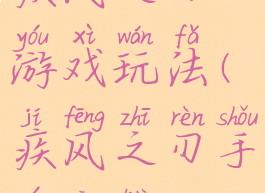 yóu xì wán fǎ
游戏玩法(
jí fēng zhī rèn shǒu
疾风之刃手